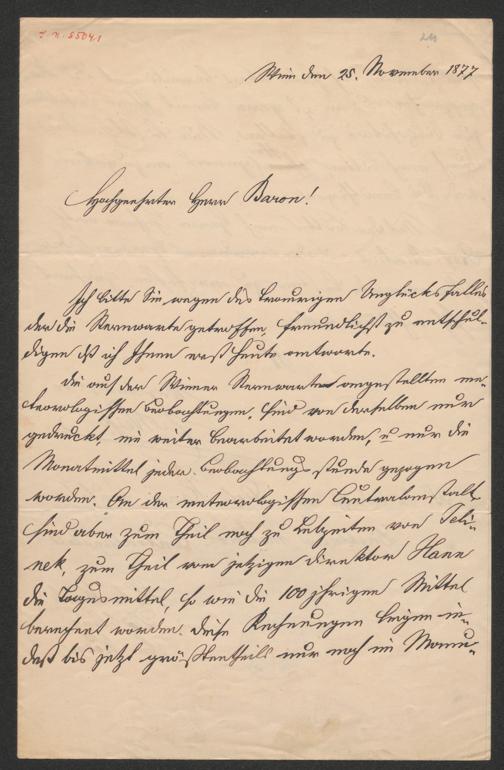 I. N. 55041
Wien den 25. November 1877
Hochgeehrter Herr Baron!
Ich bitte Sie wegen des traurigen Unglücksfalles
der die Sternwarte getroffen, freundlichst zu entschul-
digen dß ich Ihnen erst heute antworte.
Die auf der Wiener Sternwarte angestellten me-
teorologischen Beobachtungen, sind von derselben nur
gedruckt, nie weiter bearbeitet worden, u nur die
Monatmittel jeder Beobachtungsstunde gezogen
worden. An der meteorologischen Centralanstalt
sind aber zum Theil noch zu Lebzeiten von Jeli-
nek, zum Theil vom jetzigen Direktor Hann
die Tagesmittel, so wie die 100 jhrigen Mittel
berechnet worden. Diese Rechnungen liegen in-
deß bis jetzt größtentheils nur noch im Manu-